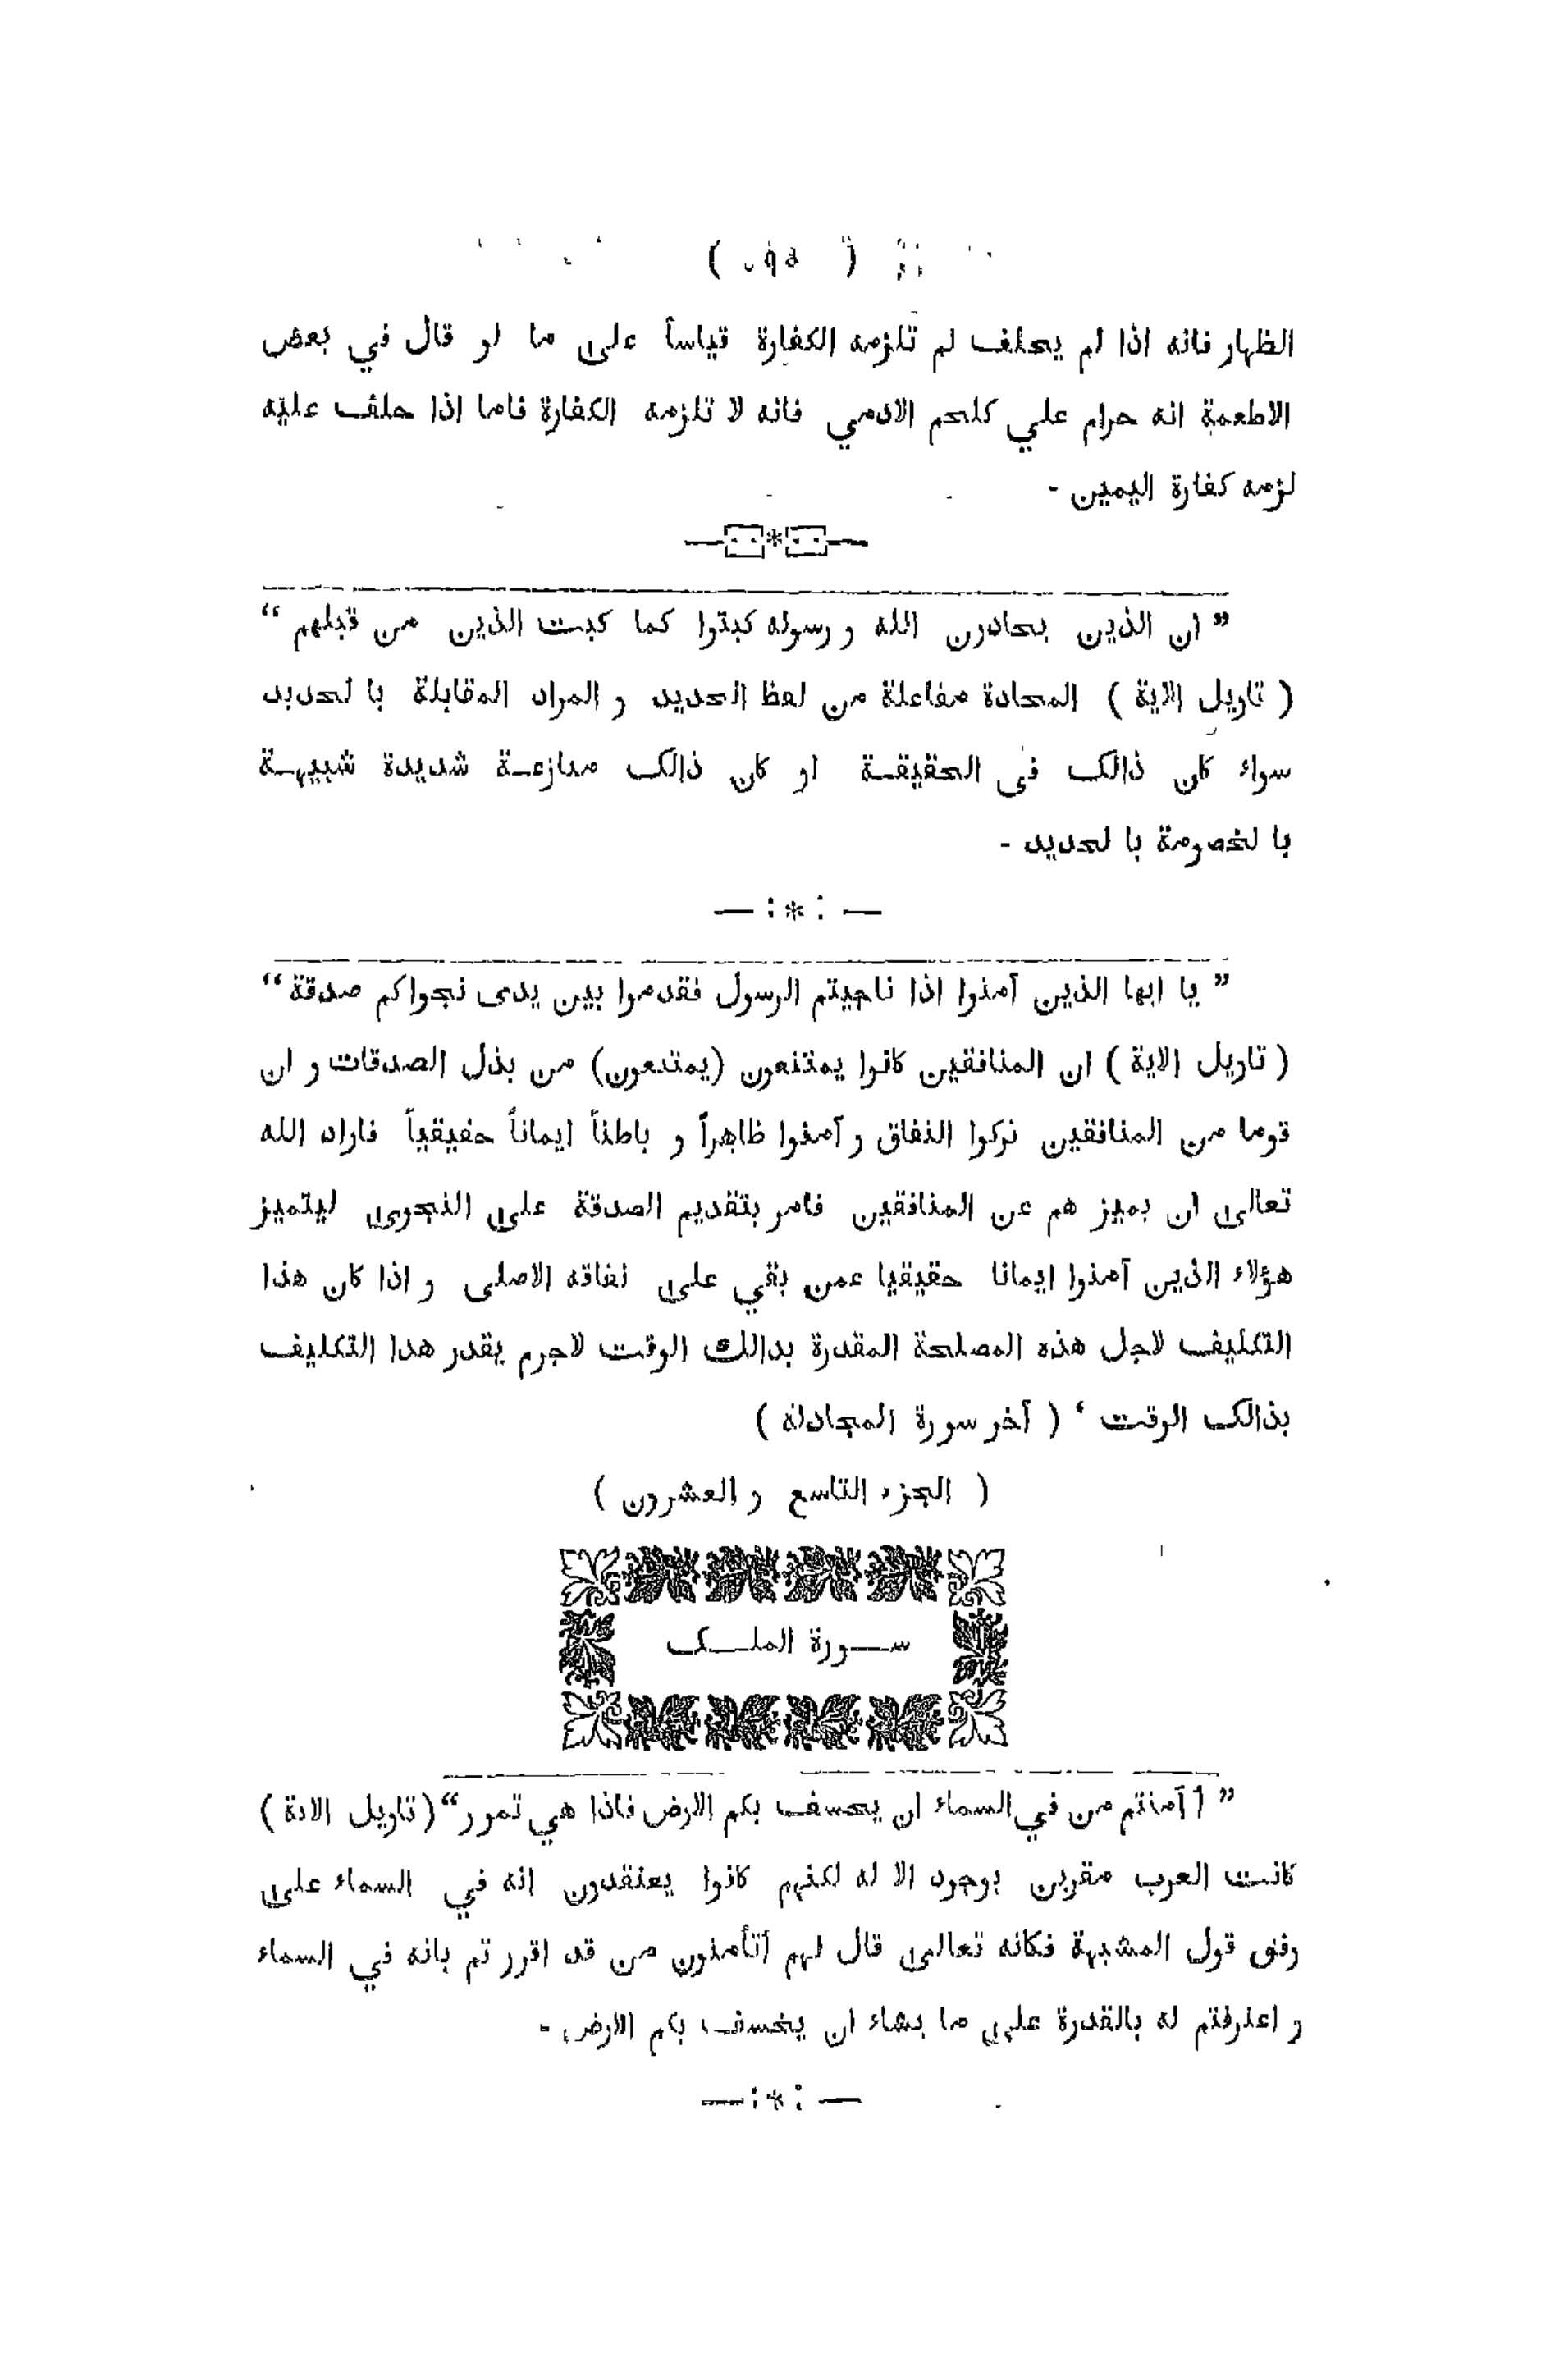 الظهار فانه اذا لم يحلف لم تلزمه الكفارة قياسأ على ما لو قال في بعض
الاطعمة انه حرام علي كلحم الادمي فانه لا تلزمه الكفارة فاما اذا حلف عليه
لزمه كفارة اليمين -
—*—
” ان الذين يحادون الله و رسوله كبتوا كما كبت الذين من قبلهم “
( تاويل الاية ) المحادة مفاعلة من لفظ الحديد و المراد المقابلة با لحديد
سواء كان ذالك فى الحقيقـة او كان ذالك منازعـة شديدة شبيهـة
با لخصومة با لحديد -
— : * : —
” يا ايها الذين آمنوا اذا ناجيتم الرسول فقدموا بين يدى نجواكم صدقة “
( تاويل الاية ) ان المنافقين كانوا يمتنعون (يمتنعون) من بذل الصدقات و ان
قوما من المنافقين تركوا النفاق و آمنوا ظاهراً و باطناً ايماناً حقيقياً فاراد الله
تعالى ان يميز هم عن المنافقين فامر بتقديم الصدقة على النجوى ليتميز
هؤلاء الذين آمنوا ايمانا حقيقيا عمن بقي على نفاقه الاصلى و اذا كان هذا
التكليف لاجل هذه المصلحة المقدرة بذالك الوقت لاجرم يقدر هذا التكليف
بذالك الوقت ‘ ( آخر سورة المجادلة )
( الجزء التاسع و العشرون )
ســورة الملــك
” أ أمنتم من في السماء ان يخسف بكم الارض فاذا هي تمور “ ( تاويل الاية )
كانت العرب مقرين بوجود الا له لكنهم كانوا يعتقدون انه في السماء على
وفق قول المشبهة فكانه تعالى قال لهم أتأمنون من قد اقرر تم بانه في السماء
و اعترفتم له بالقدرة على ما يشاء ان يخسف بكم الارض -
— : * : —